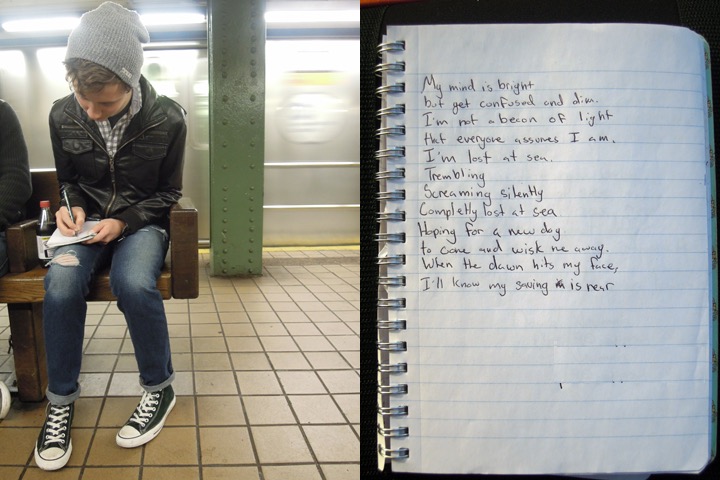 My mind is bright
but get confused and dim.
I'm not a becon of light
that everyone assumes I am.
I'm lost at sea.
Trembling
Screaming silently
Completly lost at sea
Hoping for a new day
to come and wisk me away.
When the dawn hits my face,
I'll know my saving is near